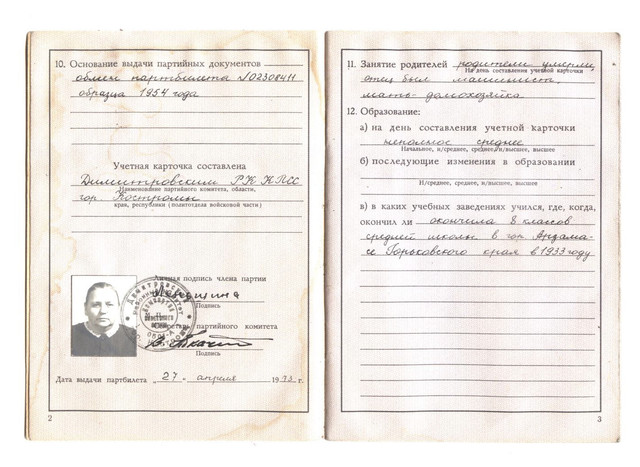 10. Основание выдачи партийных документов
обмен партбилета №02308411
образца 1954 года
Учетная карточка составлена
Димитровским РК КПСС
Наименование партийного комитета, области,
гор. Костромы
края, республики (политотдела войсковой части)
Личная подпись члена партии
Подпись
Секретарь партийного комитета
Подпись
Дата выдачи партбилета „27" апреля 1973 г.
2
11. Занятие родителей родители умерли,
На день составления учетной карточки
отец был машинист,
мать-домохозяйка
12. Образование:
а) на день составления учетной карточки
неполное среднее
Начальное, н/среднее, среднее, н/высшее, высшее
б) последующие изменения в образовании
Н/среднее, среднее, н/высшее, высшее
в) в каких учебных заведениях учился, где, когда,
окончил ли окончила 8 классов
средней школы в гор. Арзама-
се Горьковского края в 1933 году
3